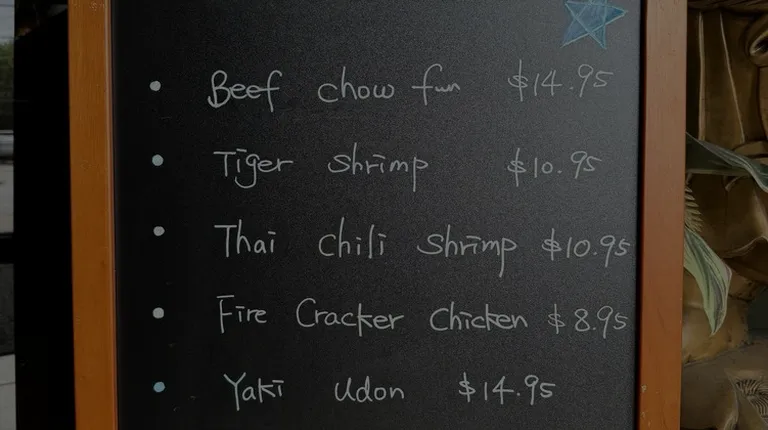 • Beef chow fun $14.95
• Tiger Shrimp $10.95
• Thai Chili Shrimp $10.95
• Fire Cracker Chicken $8.95
• Yaki Udon $14.95